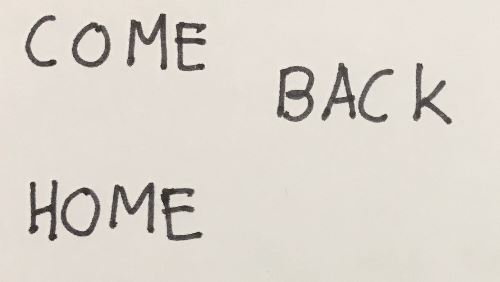 COME
BACK
HOME